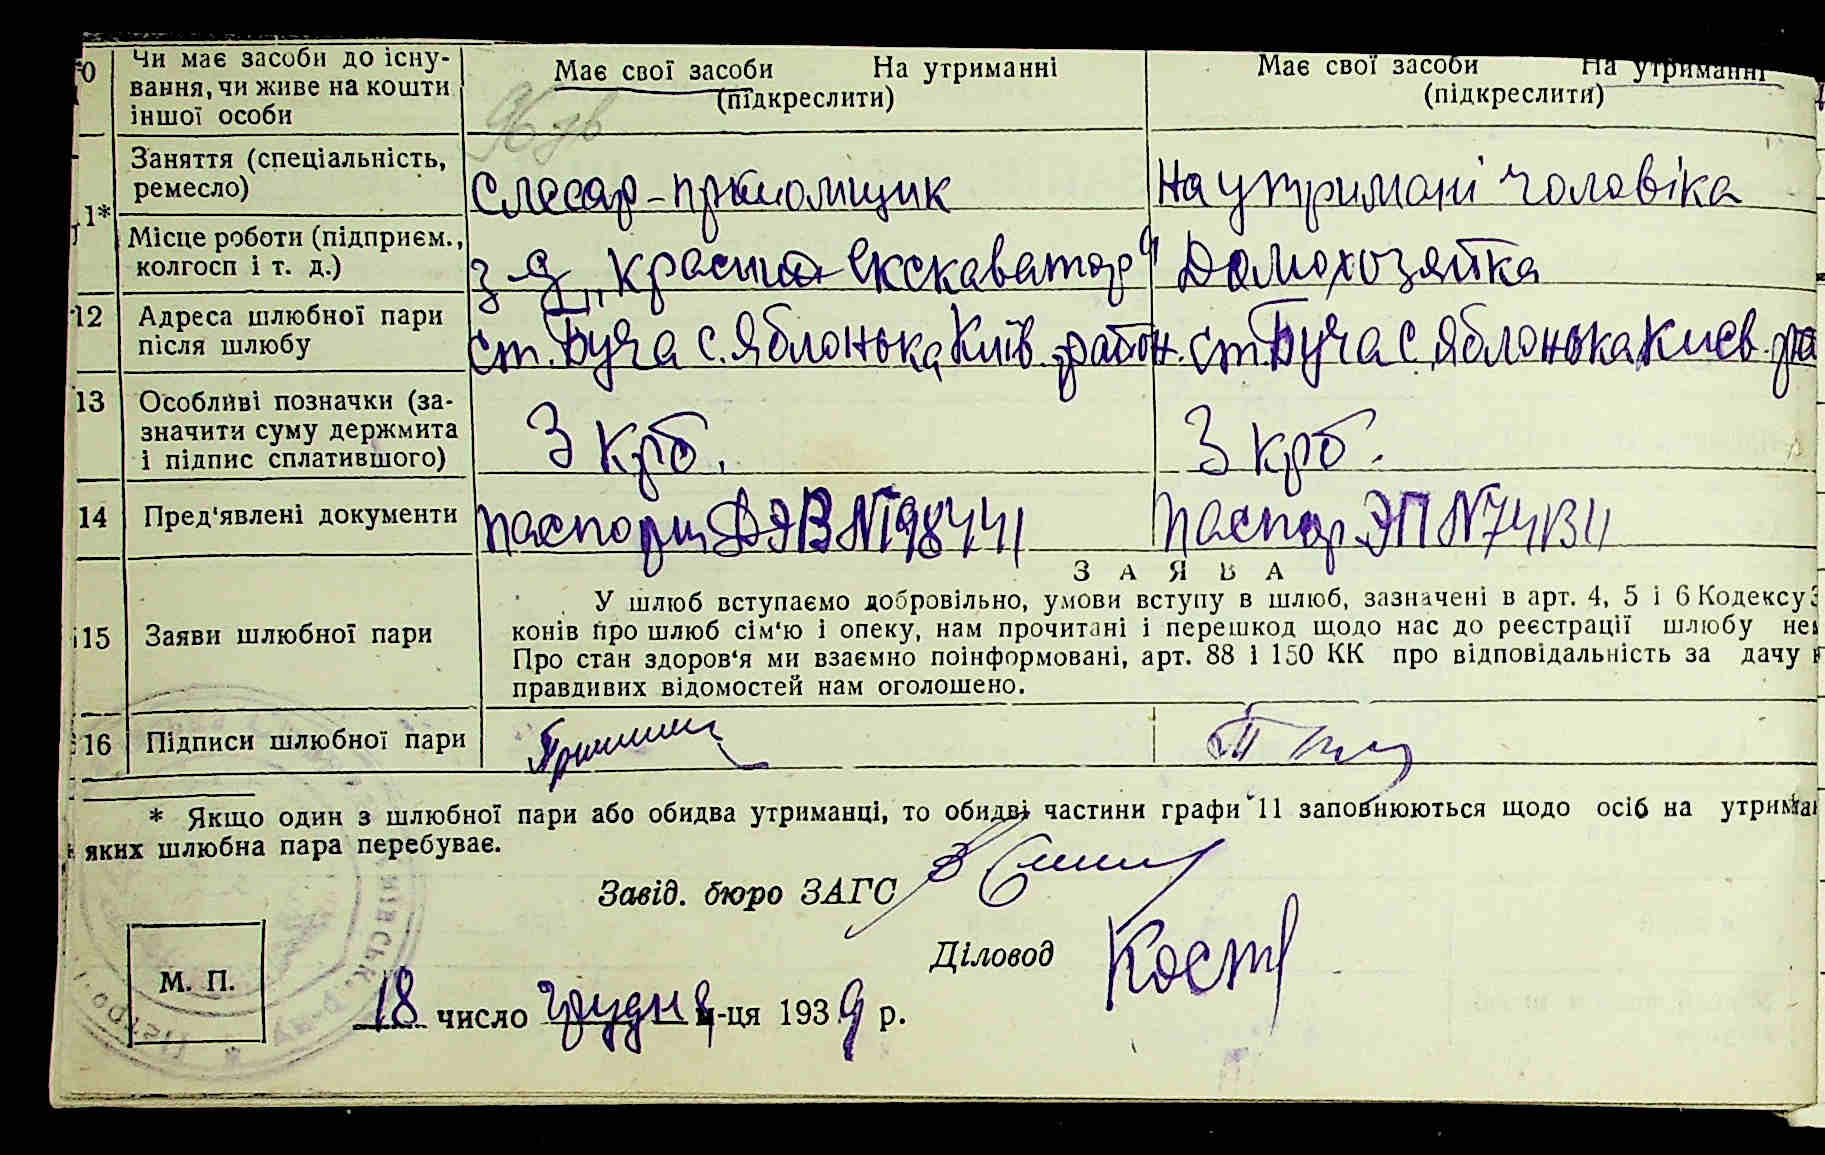 10 Чи має засоби до існу-
вання, чи живе на кошти
іншої особи
Має свої засоби На утриманні
(підкреслити)
Має свої засоби На утриманні
(підкреслити)
11* Заняття (спеціальність,
ремесло)
Слесар-прийомщик
На утримані чоловіка
Місце роботи (підприєм.,
колгосп і т. д.)
з-д „Красний екскаватор"
Домохозяйка
12 Адреса шлюбної пари
після шлюбу
ст. Буча с. Яблонька Київ. район.
ст. Буча с. Яблонька Києв. ра
13 Особливі позначки (за-
значити суму держмита
і підпис сплатившого)
3 крб.
3 крб.
14 Пред'явлені документи
паспорт №
паспор. ЭП №
З А Я В А
15 Заяви шлюбної пари
У шлюб вступаємо добровільно, умови вступу в шлюб, зазначені в арт. 4, 5 і 6 Кодексу З
конів про шлюб сім'ю і опеку, нам прочитані і перешкод щодо нас до реєстрації шлюбу нем
Про стан здоров'я ми взаємно поінформовані, арт. 88 і 150 КК про відповідальність за дачу н
правдивих відомостей нам оголошено.
16 Підписи шлюбної пари
* Якщо один з шлюбної пари або обидва утриманці, то обидві частини графи 11 заповнюються щодо осіб на утриман
яких шлюбна пара перебуває.
Завід. бюро ЗАГС
Діловод Кост
М. П.
18 число грудня м-ця 1939 р.